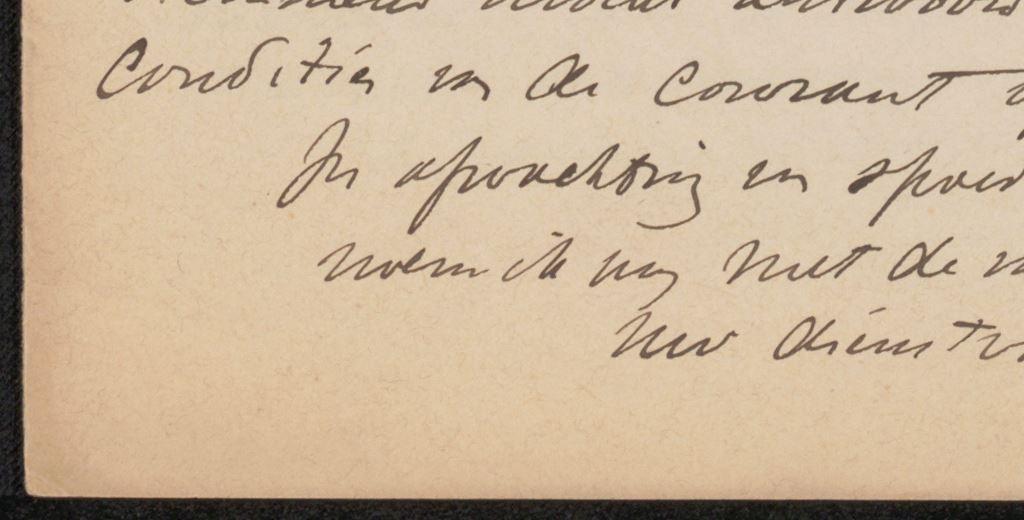 Conditiën in de Courant
In afwachting en spoed
noem ik mij met de
Uw dienstv